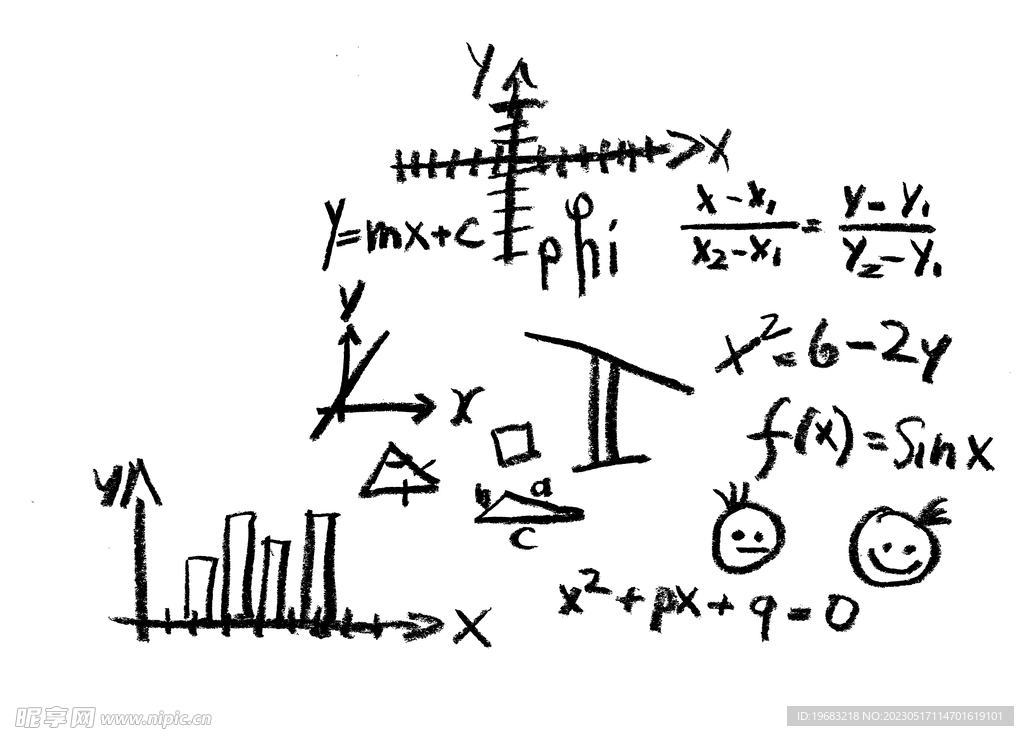 y
x
y = mx + c
φ
phi
x - x₁ / x₂ - x₁ = y - y₁ / y₂ - y₁
y
x
x² = 6 - 2y
f(x) = sin x
b a
c
y
x
x² + px + q = 0
昵享网 www.nipic.cn
ID:19683218 NO:20230517114701619101